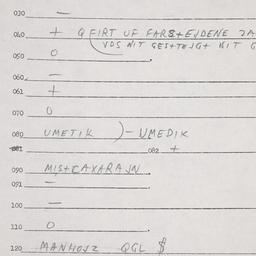 030 —
040 + Q FIRT UF FARS+EJDENE ZA
VDS NIT GES+TEJG+ NIT G
050 O
060 —
061 +
070 O
080 UMETIK ) - UMEDIK
081 082 +
090 MIS+CAXARAJN
091 —
100 —
110 O
120 MANHOJZ QGL $